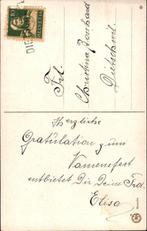 Frl.
Christina Bonhard
Dietschwil.
Herzliche
Gratulation zum
Namensfest
entbietet Dir Deine Frd.
Elisa